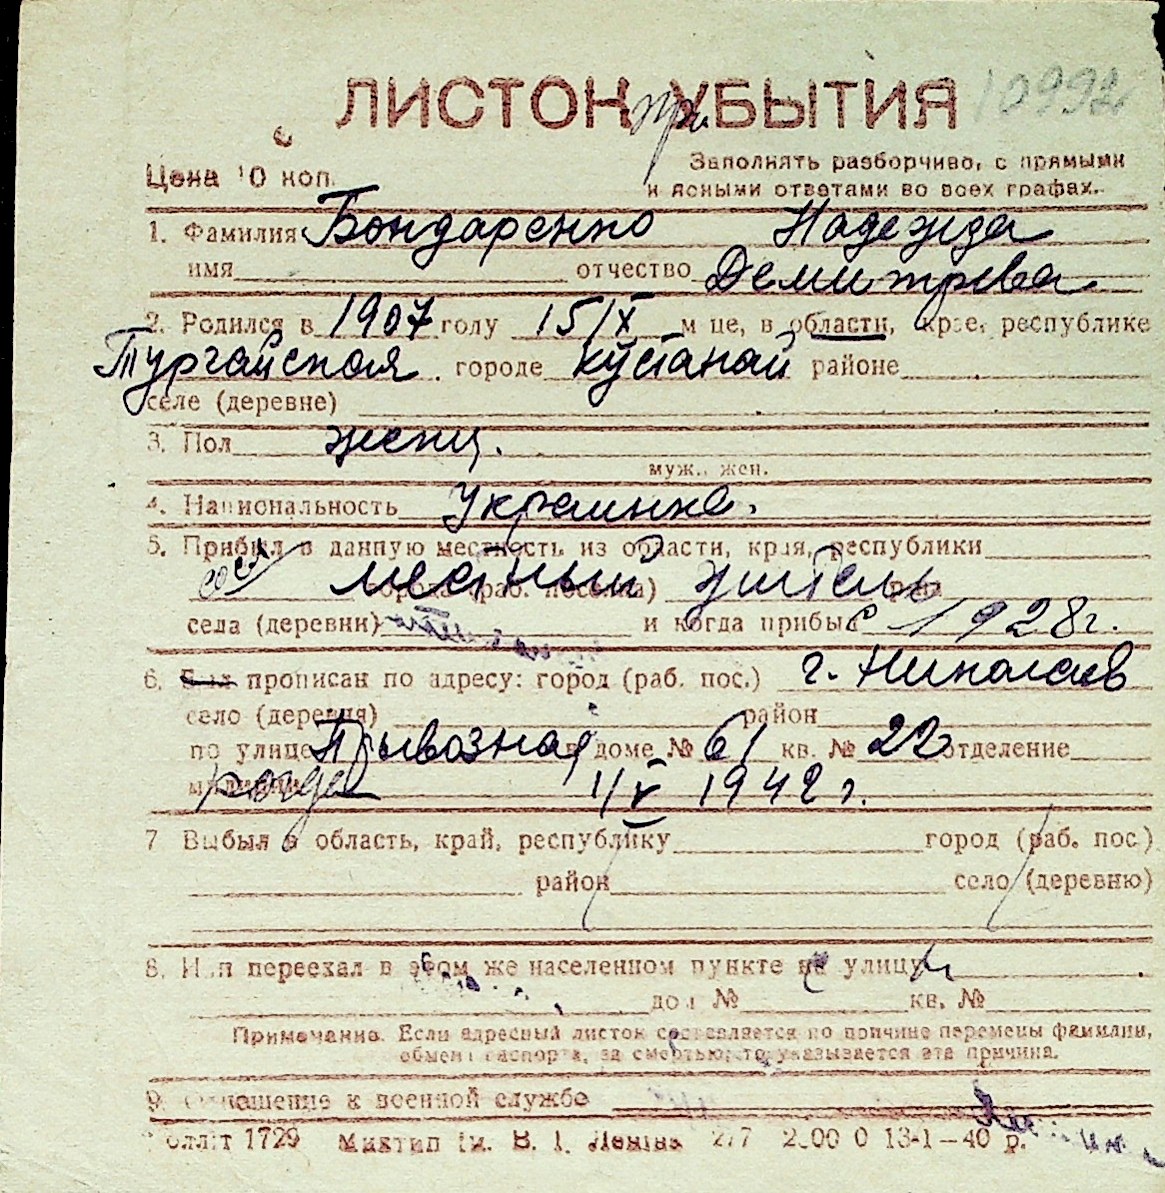 ЛИСТОК УБЫТИЯ
пр.
10992
Цена 10 коп.
Заполнять разборчиво, с прямыми
и ясными ответами во всех графах.
1. Фамилия Бондаренко Надежда
имя отчество Демитрева
2. Родился в 1907 году 15/IX м-це, в области, крае, республике
Тургайская городе Кустанай районе
селе (деревне)
3. Пол женщ.
муж., жен.
4. Национальность Украинка.
5. Прибыл в данную местность из области, края, республики
города (раб. поселка) местный житель
села (деревни) и когда прибыл с 1928 г.
6. Был прописан по адресу: город (раб. пос.) г. Николаев
село (деревня) район
по улице Привозная в доме № 61 кв. № 22 отделение
милиции когда 1/V 1942 г.
7 Выбыл в область, край, республику город (раб. пос.)
район село (деревню)
8. Или переехал в этом же населенном пункте на улицу
дом № кв. №
Примечание. Если адресный листок составляется по причине перемены фамилии,
обмена паспорта, за смертью, то указывается эта причина.
9. Отношение к военной службе
1729 им. В. И. Ленина 13-1-40 р.